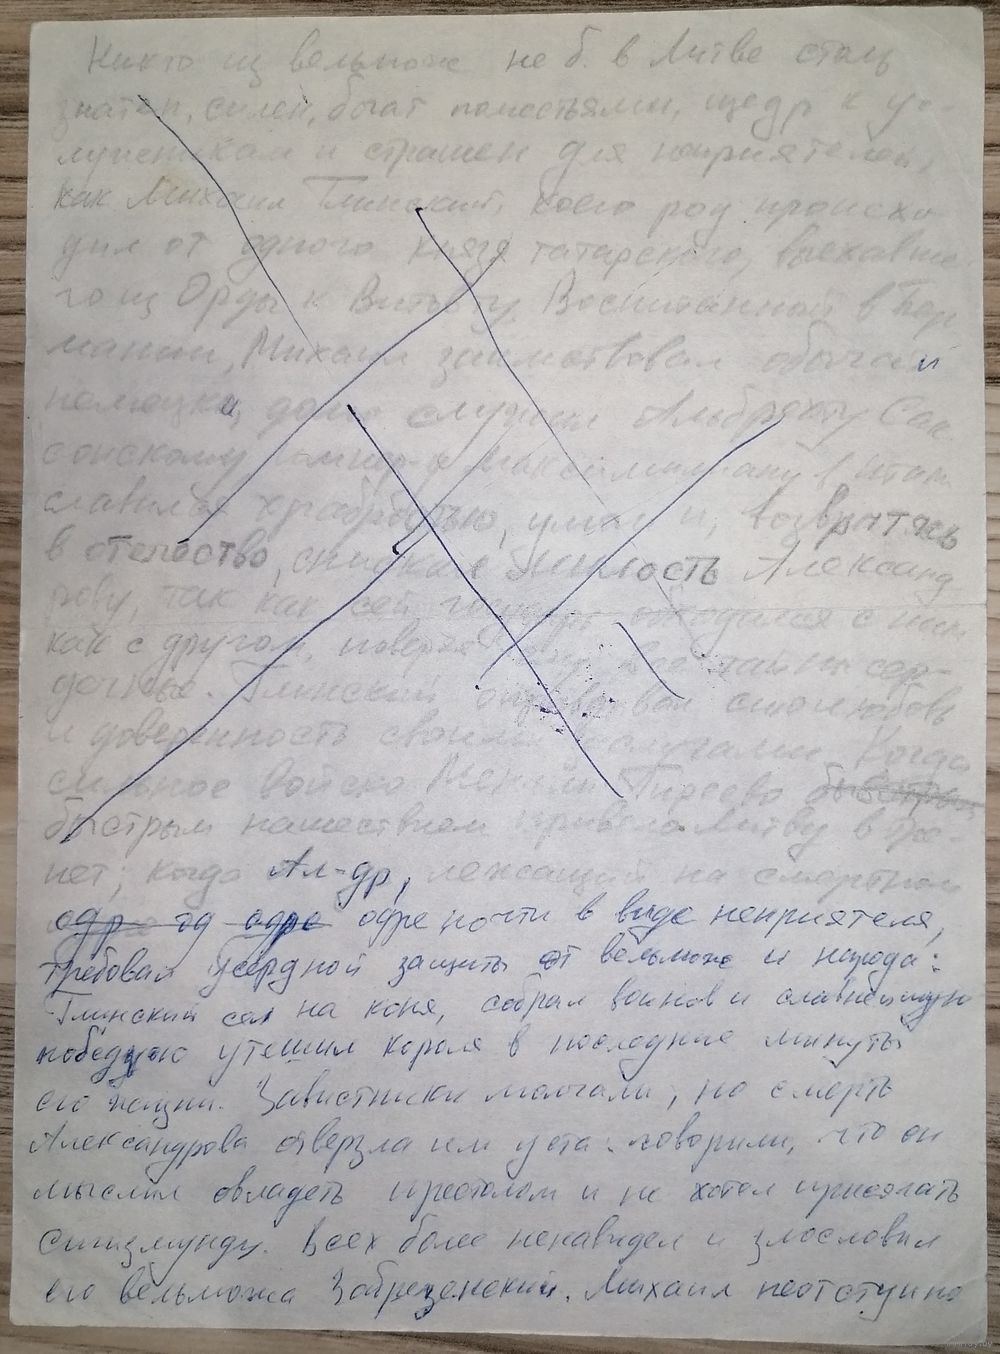 Никто из вельмож не б. в Литве столь
знатен, силен, богат поместьями, щедр к ус-
лужникам и страшен для неприятелей,
как Михаил Глинский, коего род происхо-
дил от одного князя татарского, выехавше
го из Орды к Витовту. Воспитанный в Гер
мании, Михаил заимствовал обычаи
немецки, долго служил Альбрехту Сак
сонскому, имп-ру Максимилиану в Итал.
славился храбростью, умом и, возвратясь
в отечество, снискал милость Александ
рову, так как сей государь обходился с ним
как с другом, поверяя ему все тайны сер-
дечные. Глинский оправдывал сию любовь
и доверенность своими заслугами. Когда
сильное войско Менгли Гиреево быстрым
быстрым нашествием привело Литву в тре-
пет; когда Ал-др, лежащий на смертном
одре од одре одре почти в виде неприятеля,
требовал усердной защиты от вельмож и народа:
Глинский сел на коня, собрал воинов и славнейшую
победую утешил короля в последние минуты
его жизни. Завистники молчали, но смерть
Александрова отверзла им уста: говорили, что он
мыслил овладеть престолом и не хотел присягать
Сигизмунду. Всех более ненавидел и злословил
его вельможа Забрезенский. Михаил неотступно